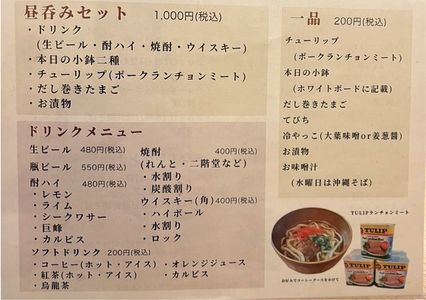 昼呑みセット 1,000円(税込)
・ドリンク
(生ビール・酎ハイ・焼酎・ウイスキー)
・本日の小鉢二種
・チューリップ(ポークランチョンミート)
・だし巻きたまご
・お漬物
ドリンクメニュー
生ビール 480円(税込)
瓶ビール 550円(税込)
酎ハイ 480円(税込)
・レモン
・ライム
・シークワサー
・巨峰
・カルピス
焼酎 400円(税込)
(れんと・二階堂など)
・水割り
・炭酸割り
ウイスキー(角)400円(税込)
・ハイボール
・水割り
・ロック
ソフトドリンク 200円(税込)
・コーヒー(ホット・アイス) ・オレンジジュース
・紅茶(ホット・アイス) ・カルピス
・烏龍茶
一品 200円(税込)
チューリップ
(ポークランチョンミート)
本日の小鉢
(ホワイトボードに記載)
だし巻きたまご
てびち
冷やっこ(大葉味噌or姜葱醤)
お漬物
お味噌汁
(水曜日は沖縄そば)
TULIPランチョンミート
TULIP
TULIP
TULIP
お好みでコーレーグースをかけて